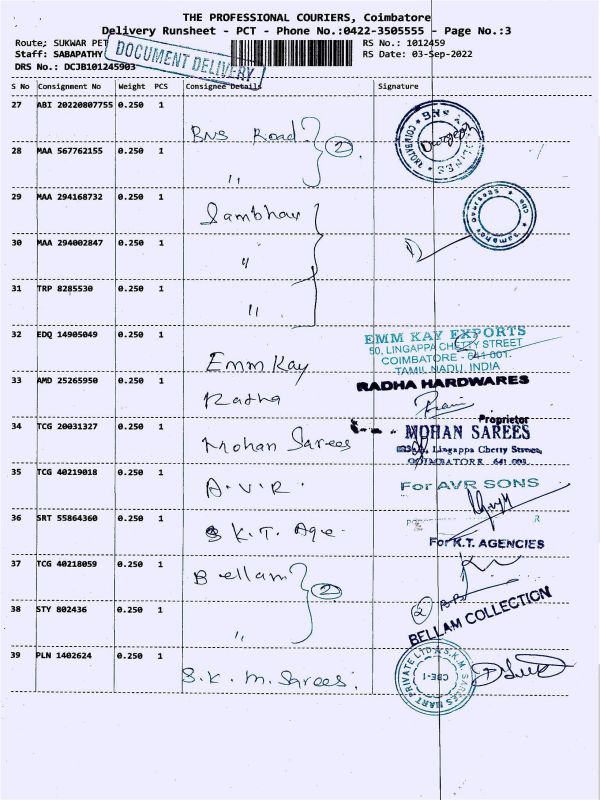 THE PROFESSIONAL COURIERS, Coimbatore
Delivery Runsheet - PCT - Phone No.:0422-3505555 - Page No.:3
Route: SUKWAR PET
RS No.: 1012459
Staff: SABAPATHY
RS Date: 03-Sep-2022
DOCUMENT DELIVERY
DRS No.: DCJB101245903
S No Consignment No Weight PCS Consignee Details Signature
27 ABI 20220807755 0.250 1
BNS Road } 2
BNS
COIMBATORE
28 MAA 567762155 0.250 1
"
29 MAA 294168732 0.250 1
Sambhav
30 MAA 294002847 0.250 1
"
31 TRP 8285530 0.250 1
"
32 EDQ 14905049 0.250 1
Emm Kay
EMM KAY EXPORTS
50, LINGAPPA CHETTY STREET
COIMBATORE - 641 001.
TAMIL NADU, INDIA
33 AMD 25265950 0.250 1
Radha
RADHA HARDWARES
Proprietor
34 TCG 20031327 0.250 1
Mohan Sarees
MOHAN SAREES
Lingappa Chetty Street,
COIMBATORE 641 001.
35 TCG 40219018 0.250 1
A.V.R.
For AVR SONS
36 SRT 55864360 0.250 1
K.T. Age
For K.T. AGENCIES
37 TCG 40218059 0.250 1
Bellam } 2
2
BELLAM COLLECTION
38 STY 802436 0.250 1
"
39 PLN 1402624 0.250 1
S.K.M. Sarees.
S.K.M. SAREES MART PRIVATE LTD
CBE-1